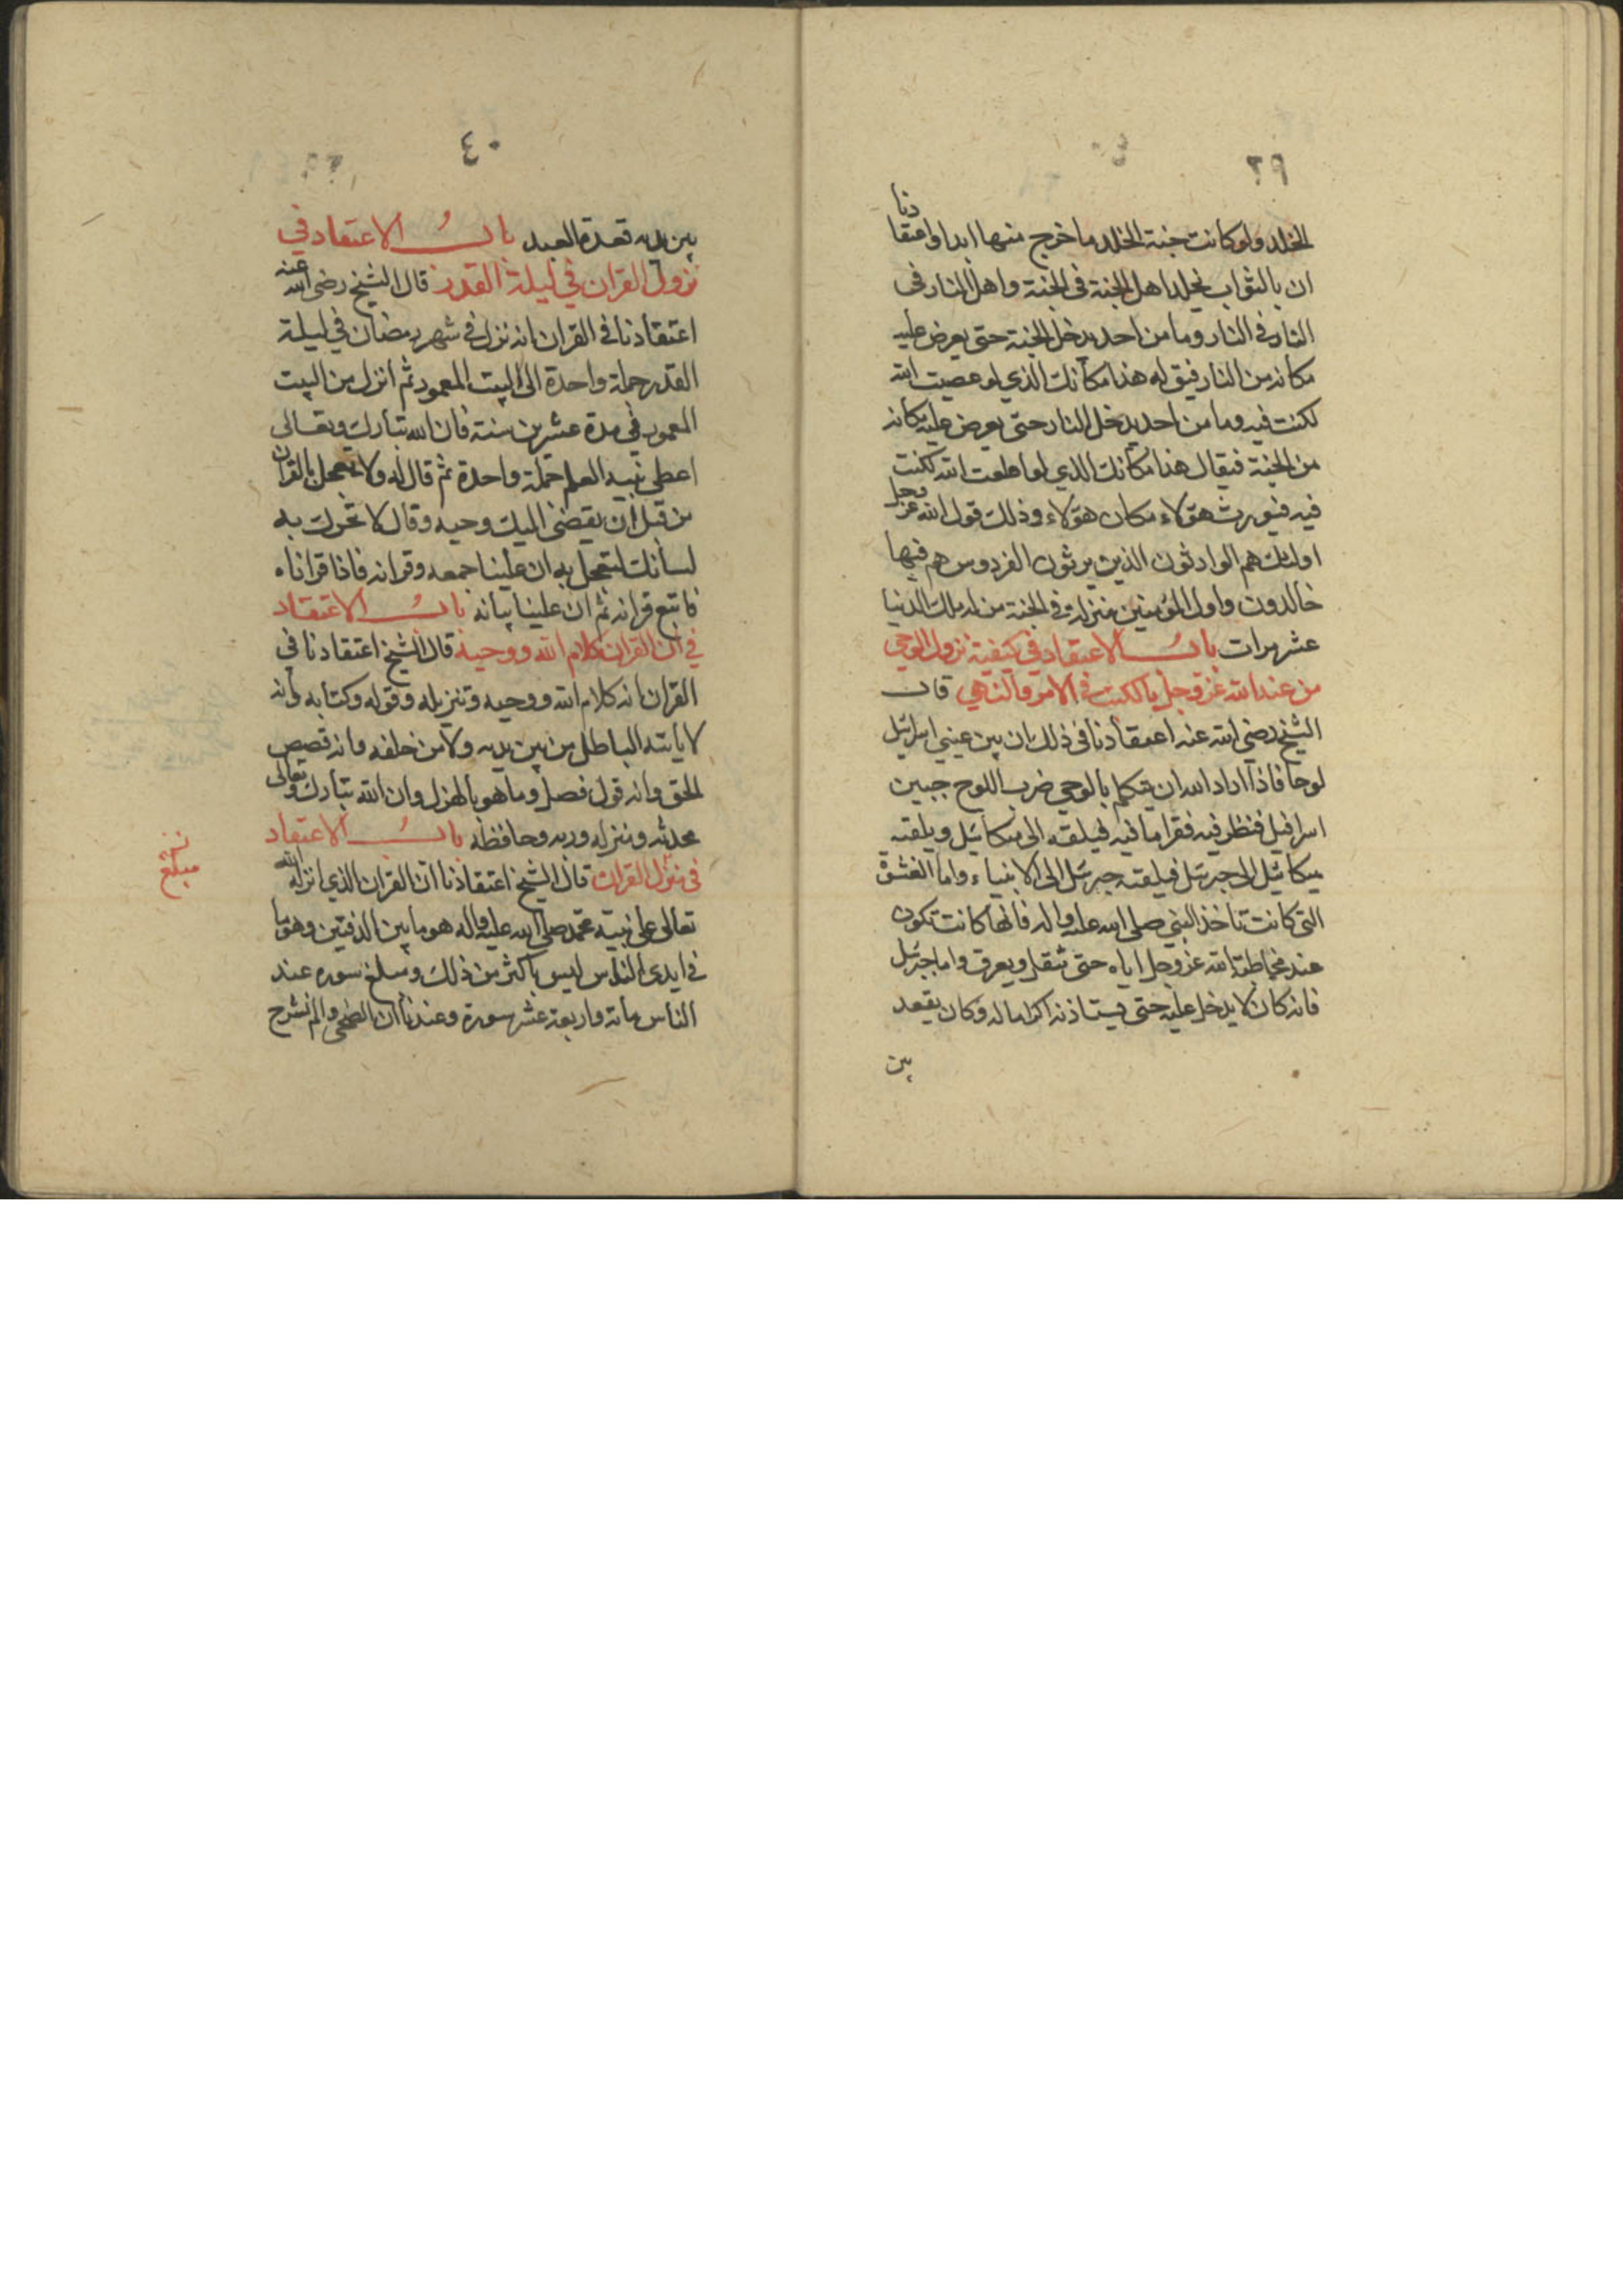 ٣٩
الخلد ولو كانت جنة الخلد ما خرج منها ابدا واعتقادنا
ان بالثواب يخلد اهل الجنة فى الجنة واهل النار فى
النار فى النار وما من احد يدخل الجنة حتى يعرض عليه
مكانه من النار فيق له هذا مكانك الذي لو عصيت الله
لكنت فيه وما من احد يدخل النار حتى يعرض عليه مكانه
من الجنة فيقال هذا مكانك الذي لو اطعت الله لكنت
فيه فيورث هؤلاء مكان هؤلاء وذلك قول الله عز وجل
اولئك هم الوارثون الذين يرثون الفردوس هم فيها
خالدون واول المؤمنين منزلة فى الجنة من له ملك الدنيا
عشر مرات باب الاعتقاد في كيفية نزول الوحي
من عند الله عز وجل بالكتب في الامر والنهي قال
الشيخ رضي الله عنه اعتقادنا فى ذلك ان بين عيني اسرائيل
لوحا فاذا اراد الله ان يتكلم بالوحي ضرب اللوح جبين
اسرافيل فنظر فيه فقرا ما فيه فيلقه الى ميكائيل ويلقيه
ميكائيل الى جبرئيل فيلقيه جبرئيل الى الانبياء واما الغشوة
التى كانت تاخذ النبي صلى الله عليه واله فانها كانت تكون
عند مخاطبة الله عز وجل اياه حتى يثقل ويعرق واما جبرئيل
فانه كان لا يدخل عليه حتى يستاذنه اكراما له وكان يقعد
بين
٤٠
بين يديه قعدة العبد باب الاعتقاد في
نزول القران في ليلة القدر قال الشيخ رضى الله عنه
اعتقادنا فى القران انه نزل فى شهر رمضان في ليلة
القدر جملة واحدة الى البيت المعمور ثم انزل من البيت
المعمور في مدة عشرين سنة فان الله تبارك وتعالى
اعطى نبيه العلم جملة واحدة ثم قال له ولا تعجل بالقران
من قبل ان يقضى اليك وحيه وقال لا تحرك به
لسانك لتعجل به ان علينا جمعه وقرانه فاذا قراناه
فاتبع قرانه ثم ان علينا بيانه باب الاعتقاد
في ان القران كلام الله ووحيه قال الشيخ اعتقادنا في
القران انه كلام الله ووحيه وتنزيله وقوله وكتابه وانه
لا ياتيه الباطل من بين يديه ولا من خلفه وانه قصص
الحق وانه قول فصل وما هو بالهزل وان الله تبارك وتعالى
محدثه ومنزله وربه وحافظه باب الاعتقاد
فى القران قال الشيخ اعتقادنا ان القران الذي انزله الله
تعالى على نبيه محمد صلى الله عليه واله هو ما بين الدفتين وهو ما
في ايدى الناس ليس باكثر من ذلك ومبلغ سوره عند
الناس مائة واربعة عشر سورة وعندنا ان الضحى والم نشرح
مبلغ